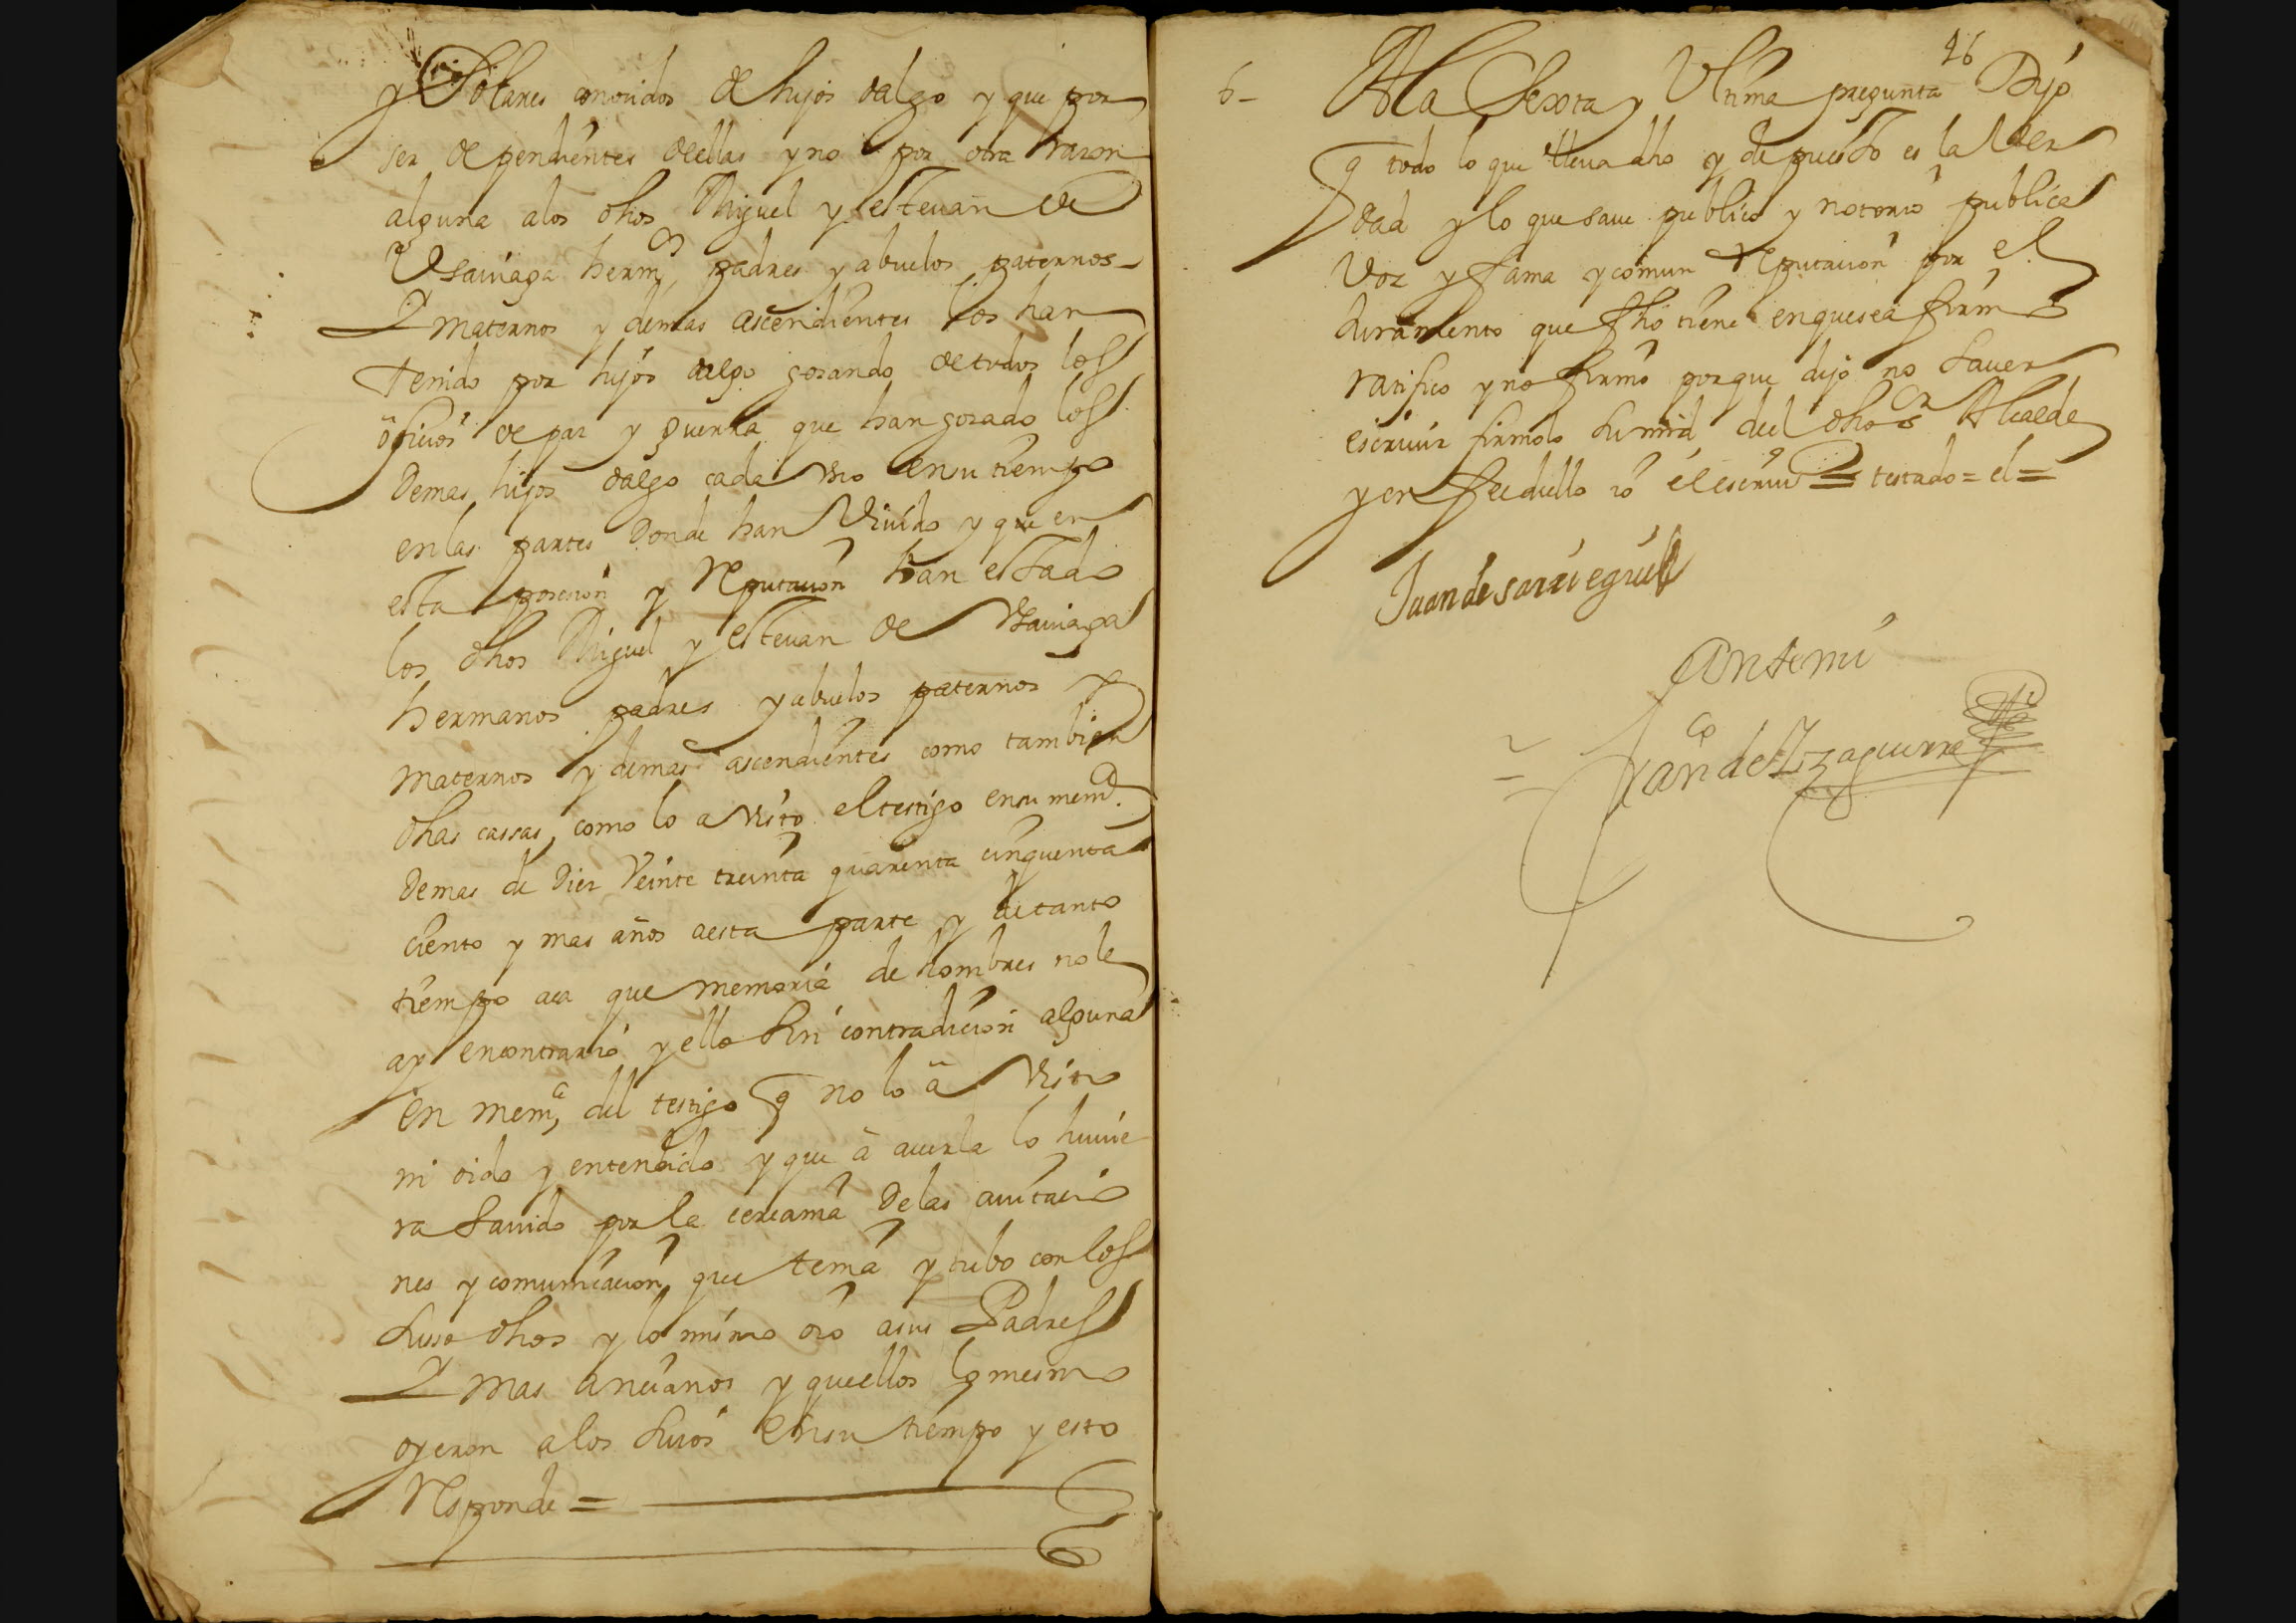 y Solares conocidos de hijos dalgo y que por
ser dependientes dellas y no por otra razon
alguna a los dhos Miguel y esteuan de
Vsauiaga herm.os padres y abuelos paternos
Y maternos y demas ascendientes los han
tenido por hijos dalgo gosando de todos los
oficios de paz y guerra que han gosado los
Demas hijos dalgo cada vno en su tiempo
en las partes Donde han Viuido y que en
esta posesion y Reputacion han estado
los dhos Miguel y esteuan de Vsauiaga
hermanos padres y abuelos paternos y
maternos y demas ascendientes como tambien
dhas cassas como lo a visto el testigo en su mem.a
Demas de Diez Veinte treinta quarenta cinquenta
ciento y mas años a esta parte y de tanto
tiempo aca que memoria de hombres no le
ay en contrario y ello sin contradicion alguna
en mem.a del testigo q no lo a visto
ni oido y entendido y que a auerla lo huuie
ra sauido por la cercania De las auitacio
nes y comunicacion que tenia y tubo con los
suso dhos y lo mismo oio a sus Padres
Y mas ancianos y que ellos lo mesmo
oyeron a los suios en su tiempo y esto
Responde =
46
6- A la Sexta y Vltima pregunta Dijo
q todo lo que lleua dho y depuesto es la Ver
dad y lo que saue publico y notorio publica
Voz y fama y comun Reputacion por el
Juramento que fho tiene en que se afirmo
ratifico y no firmo porque dijo no sauer
escriuir firmolo su mrd del dho s.r Alcalde
y en fee dello io el escriu.o = testado = el =
Juan de sarriegui
Ante mi
Fran.co de Yzaguirre